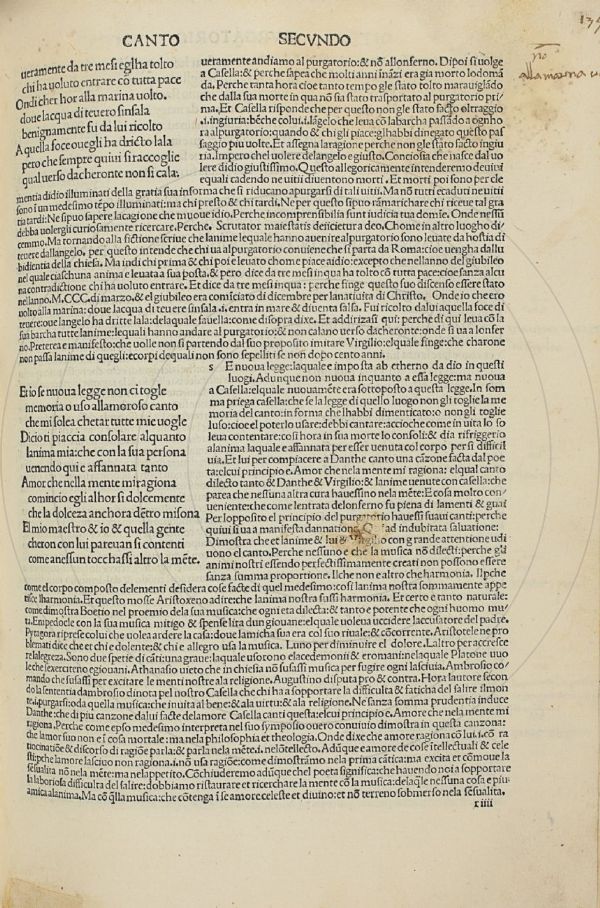 CANTO SECVNDO
ueramente da tre mesi eglha tolto
chi ha uoluto entrare cō tutta pace
Ondi cher hor alla marina uolto.
doue lacqua di teuero sinsala
benignamente fu da lui ricolto
A quella foce ouegli ha dricto lala
pero che sempre quiui si raccoglie
qual uerso dacheronte non si cala.
ueramente andiamo al purgatorio:& nō allonferno. Dipoi si uolge
a Casella:& perche sapea che molti anni ināzi era gia morto lodomā
da. Perche tanta hora cioe tanto tempo gle stato tolto marauigliādo
che dalla sua morte in qua nō sia stato trasportato al purgatorio pri
ma. Et Casella risponde che per questo non gle stato facto oltraggio
.i. ingiuria: bēche colui.i. lāgelo che leua cō la barcha passādo a ognho
ra al purgatorio: quando & chi gli piace: glhabbi dinegato questo pas
saggio piu uolte. Et assegna la ragione perche non gle stato facto ingiu
ria. Impero chel uolere delangelo e giusto. Conciosia che nasce dal uo
lere didio giustissimo. O questo allegoricamente intenderemo deuiui
equali cadendo ne uitii diuentono morti. Et morti poi sono per cle
mentia didio illuminati della gratia sua informa che si riducano apurgarsi di tali uitii. Ma nō tutti ecaduti ne uitii
sono ī un medesimo tēpo illuminati: ma chi presto & chi tardi. Ne per questo sipuo rāmarichare chi riceue tal gra
tia tardi: Ne sipuo sapere lacagione che muoue idio. Perche incomprensibilia sunt iudicia tua domīe. Onde nessū
debba uolergli curiosamente ricercare. Perche. Scrutator maiestatis deiicietur a deo. Chome in altro luogho di
cemmo. Ma tornando alla fictione scriue che lanime lequale hanno auenire al purgatorio sono leuate da hostia di
teuere dallangelo, per questo intende che chi ua al purgatorio conuiene che si parta da Roma: cioe uengha dallu
bidientia della chiesa. Ma indi chi prima & chi poi e leuato chome piace aidio: excepto che nellanno del giubileo
nel quale ciaschuna anima e leuata a sua posta, & pero dice da tre mesi inqua ha tolto cō tutta pace: cioe sanza alcu
na contradictione chi ha uoluto entrare. Et dice da tre mesi inqua: perche finge questo suo discenso essere stato
nellanno. M.CCC. di marzo. & el giubileo era comīciato di dicembre per lanatiuita di Christo. Onde io che ero
uolto alla marina: doue lacqua di teuere sinsala .i. entra in mare & diuenta salsa. Fui ricolto dalui aquella foce di
teuere: oue langelo ha dritte lala: delaquale fauella: come disopra dixe. Et addirizasi qui: perche di qui leua cō la
sua barcha tutte lanime: lequali hanno andare al purgatorio: & non calano uerso dacheronte: onde si ua a lonfer
no. Preterea e manifesto: che uolle non si partendo dal suo proposito imitare Virgilio: elquale finge: che charone
non passa lanime di quegli: e corpi de quali non sono sepelliti se non dopo cento anni.
Et io se nuoua legge non ci togle
memoria o uso allamoroso canto
che mi solea chetar tutte mie uogle
Dicio ti piaccia consolare alquanto
lanima mia: che con la sua persona
uenendo qui e affannata tanto
Amor che nella mente mi ragiona
comincio egli alhor si dolcemente
che la dolceza anchora dētro misona
El mio maestro & io & quella gente
cheron con lui pareuan si contenti
come anessun tocchassi altro la mēte.
s E nuoua legge: laquale e imposta ab etherno da dio in questi
luogi. Adunque non nuoua inquanto a essa legge: ma nuoua
a Casella: elquale nuouamēte era sottoposto a questa legge. In som
ma priega casella: che se la legge di quello luogo non gli togle la me
moria del canto: in forma che lhabbi dimenticato: o non gli toglie
luso: cioe el poterlo usare: debbi cantare: accioche come in uita lo so
leua contentare: cosi hora in sua morte lo consoli: & dia rifriggerio
alanima laquale e affannata per esser uenuta col corpo per si difficil
uia. Et lui per compiacere a Danthe canto una cāzone facta dal poe
ta: elcui principio e. Amor che nela mente mi ragiona: el qual canto
dilecto tanto & Danthe & Virgilio: & lanime uenute con casella: che
parea che nessuna altra cura hauessino nela mēte: E cosa molto con
ueniente: che come lentrata delonferno fu piena di lamenti & guai
Per lopposito el principio del purgatorio hauessi suaui canti: perche
quiui si ua a manifesta dannatione ad indubitata saluatione:
Dimostra che et lanime & lui & Virgilio con grande attentione udi
uono el canto. Perche nessuno e che la musica nō dilecti: perche gia
animi nostri essendo perfectissimamente creati non possono essere
sanza summa proportione. Ilche non e altro che harmonia. Ilpche
come el corpo composto delementi desidera cose facte di quel medesimo: cosi lanima nostra sommamente appe
tisce lharmonia. Et questo mosse Aristoxeno adire: che lanima nostra fassi harmonia. Et certo e tanto naturale:
come dimostra Boetio nel proemio dela sua musica: che ogni eta dilecta: & tanto e potente che ogni huomo mu/
ta. Empedocle con la sua musica mitigo & spense lira dun giouane: elquale uolena uccidere laccusatore del padre.
Pytagora riprese colui che uolea ardere la casa: doue lamicha sua era col suo riuale: & cōcorrente. Aristotele ne pro
blemati dice che et chi e dolente: & chi e allegro usa la musica. Luno per diminuire el dolore. Laltro per accresce
re la legreza. Sono due spetie di cāti: una graue: laquale usorono e lacedemonii & eromani: equale Platone uuo
le che lexercitono egiouani. Athanasio uieto che in chiesa nō susassi musica per fugire ogni lasciuia. Ambrosio co/
mando che susassi per excitare le menti nostre ala religione. Augustino disputa pro & contra. Hora lautore secon
do la sententia dambrosio dinota pel nostro Casella che chi ha a sopportare la difficulta & faticha del salire il mon
te.i. purgarsi: oda quella musica: che inuita al bene: & ala uirtu: & ala religione. Ne sanza somma prudentia induce
Danthe: che di piu canzone dalui facte delamore Casella canti questa: elcui principio e. Amore che nela mente mi
ragiona. Perche come epso medesimo interpreta nel suo symposio ouero conuiuio dimostra in questa canzona:
che lamor suo non e in cosa mortale: ma nela philosophia et theologia. Onde dixe che amore ragiona cō lui.i. cō ra
tiocinatiōe & discorso di ragiōe parla: & parla nela mēte.i. nelo ītellecto. Adūque e amore de cose ītellectuali & cele
sti: pche lamore lasciuo non ragiona.i. nō usa ragiōe: come dimostrāmo nela prima cātica: ma excita et cōmoue la
sēsualita nō nela mēte: ma nel appetito. Cōchiuderemo adūque chel poeta significa: che hauendo noi a sopportare
la laboriosa difficulta del salire: dobbiamo ristaurare et ricerchare la mente cō la musica: delaqle nessuna cosa e piu
amica alanima. Ma cō qlla musica: che cōtenga ī se amore celeste et diuino: et nō terreno sobmerso nela sēsualita.
x iiii